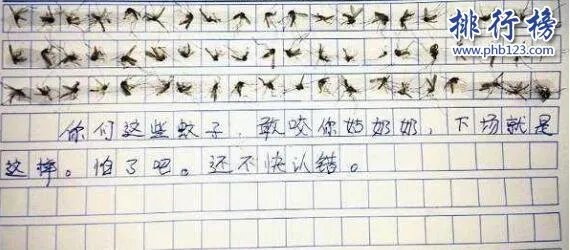 排行榜
www.phb123.com
你们这些蚊子，敢咬你姑奶奶，下场就是
这样。怕了吧。还不快认错。